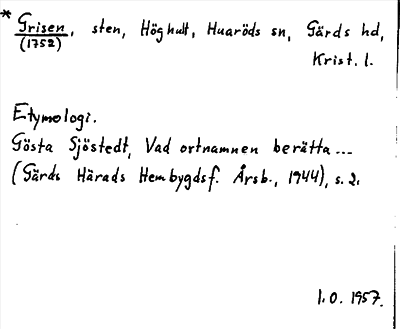 * Grisen, sten, Höghult, Huaröds sn, Gärds hd,
(1752)
Krist. l.
Etymologi.
Gösta Sjöstedt, Vad ortnamnen berätta...
(Gärds Härads Hembygdsf. Årsb., 1944), s. 2.
I.O. 1957.